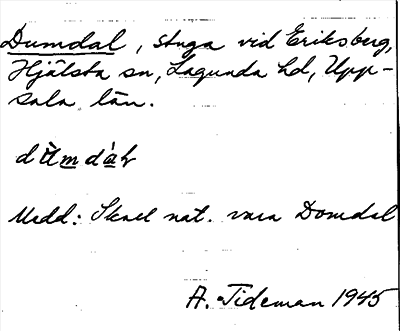 Dumdal, stuga vid Eriksberg,
Hjälsta sn, Lagunda hd, Upp-
sala län.
Medd: Skael nat. vara Domdal
A. Tideman 1945